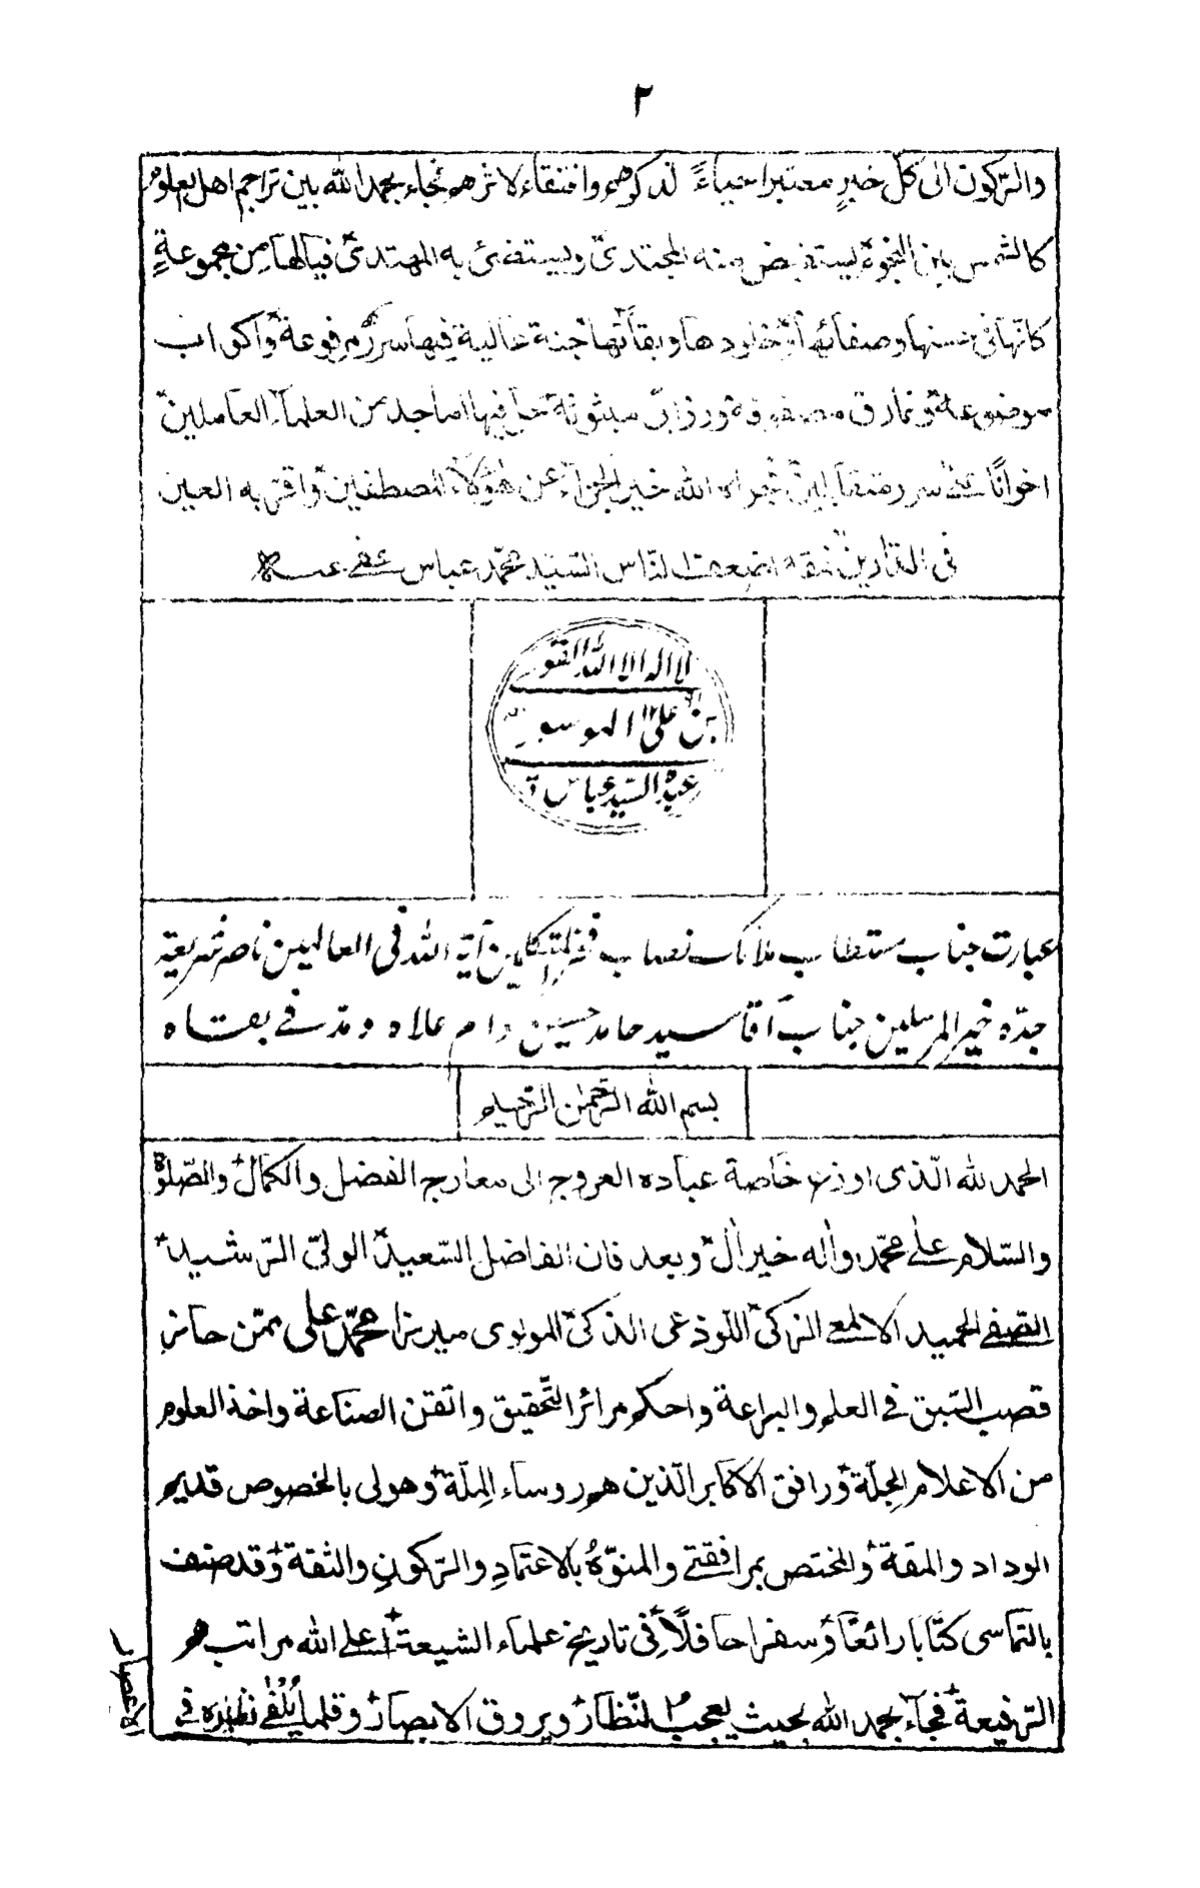 ٢
والركون الى كل خبرٍ معتبر احياءً لذكرهم واقتفاء لاثرهم فجاء بحمد الله بين تراجم اهل العلوم
كالشمس بين النجوم يستفيض منه المجتدى ويستضئ به المهتدى فيالها من مجموعةٍ
كانها فى حسنها وصفائها وخلودها وبقائها جنة عالية فيها سرر مرفوعة واكواب
موضوعة ونمارق مصفوفة وزرابى مبثوثة حل فيها اماجد من العلماء العاملين
اخوانًا على سرر متقابلين فجزاه الله خير الجزاء عن هؤلاء المصطفين واقر به العين
فى الدارين نمقه اضعف الناس السيد محمد عباس عفى عنه
لا اله الا الله القوى
بن على الموسوى
عبده السيد عباس
عبارت جناب مستطاب ملائك نصاب فخر المتكلمين آية الله فى العالمين ناصر شريعة
جدّه خير المرسلين جناب آقا سيد حامد حسين دام علاه ومدّ فى بقاه
بسم الله الرّحمٰن الرّحيم
الحمد لله الّذى اوزع خاصة عباده العروج الى معارج الفضل والكمال والصّلوة
والسّلام على محمّد واله خير ال وبعد فان الفاضل السّعيد الولىّ الرّشيد
الصّفى الحميد الالمعى الزكى اللّوذعى الذكىّ المولوى ميرزا محمّد على ممّن حاز
قصب السّبق فى العلم والبراعة واحكم مرائر التّحقيق واتقن الصناعة واخذ العلوم
من الاعلام الجلّة ورافق الاكابر الّذين هم روساء الملّة وهو لى بالخصوص قديم
الوداد والمقة والمختص بمرافقتى والمنوّهُ بالاعتمادِ والرّكونِ والثقة وقد صنف
بالتماسى كتابا رائعًا وسفرا حافلًا فى تاريخ علماء الشيعة اعلى الله مراتبهم
الرّفيعة فجاء بحمد الله بحيث يعجب النّظار ويروق الابصار وقلما يُلفى نظيره فى
الاعصار